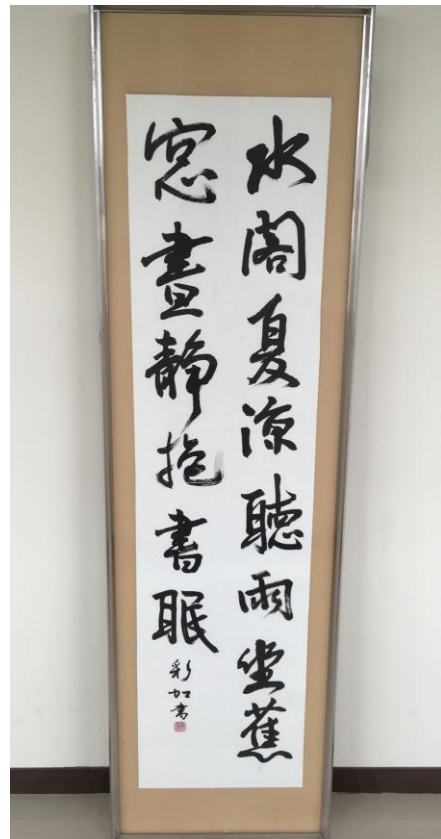 水閣夏涼聽雨坐蕉
窓晝靜抱書眠
彩加書